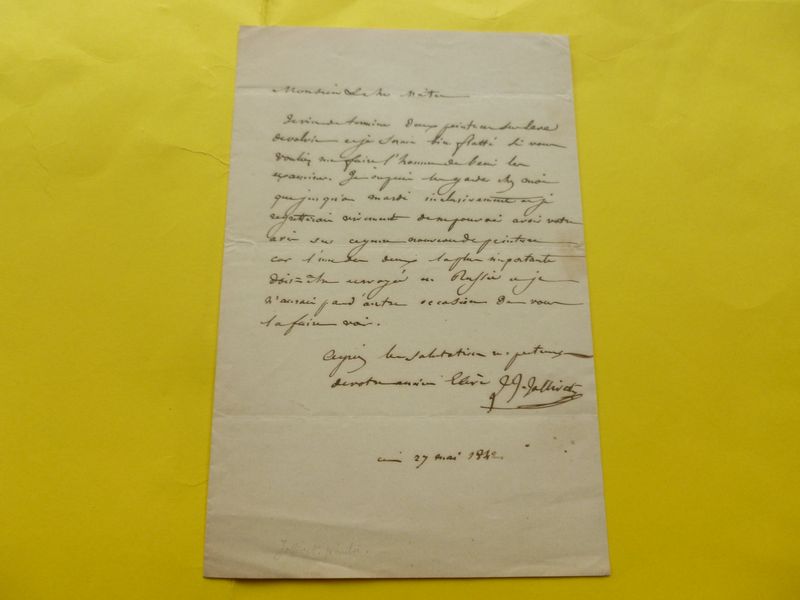 Monsieur Maître
Je viens de terminer deux peintures sur lave
de volvic et je serais bien flatté si vous
vouliez me faire l'honneur de venir les
examiner. Je ne puis les garder chez moi
que jusqu'au mardi inclusivement et je
regretterais vivement de ne pouvoir avoir votre
avis sur ce genre nouveau de peinture
car l'une des deux la plus importante
doit-être envoyée en Russie et je
n'aurais pas d'autre occasion de vous
la faire voir.
Agréez les salutations respectueuses
de votre ancien Elève J J. Jollivet
27 mai 1842
Jollivet